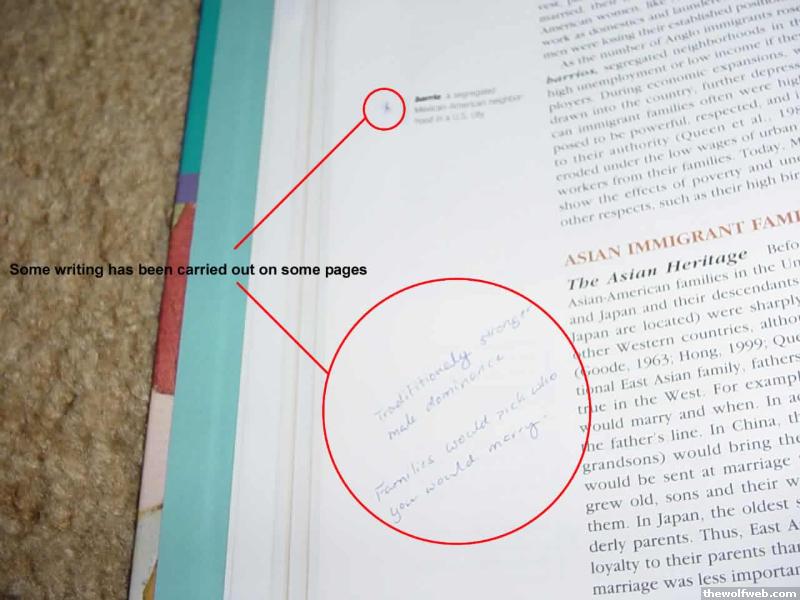 married, their
American women, like
work as domestics and
men were losing their established
As the number of Anglo immigrants rose
barrios, segregated neighborhoods in
high unemployment or low income if
ployers. During economic expansions,
drawn into the country, further
can immigrant families often were
posed to be powerful, respected, and
to their authority (Queen et al.,
eroded under the low wages of urban
workers from their families. Today,
show the effects of poverty and
other respects, such as their high
barrio a segregated
Mexican-American neighbor-
hood in a U.S. city
Some writing has been carried out on some pages
ASIAN IMMIGRANT
The Asian Heritage
Asian-American families in the
and Japan and their descendants
Japan are located) were sharply
other Western countries,
(Goode, 1963; Hong, 1999;
tional East Asian family, fathers
true in the West. For
would marry and when. In
the father's line. In China,
grandsons) would bring
would be sent at marriage
grew old, sons and their
them. In Japan, the oldest
derly parents. Thus, East
loyalty to their parents
marriage was less
Traditionally stronger
male dominance
Families would pick who
you would marry.
thewolfweb.com